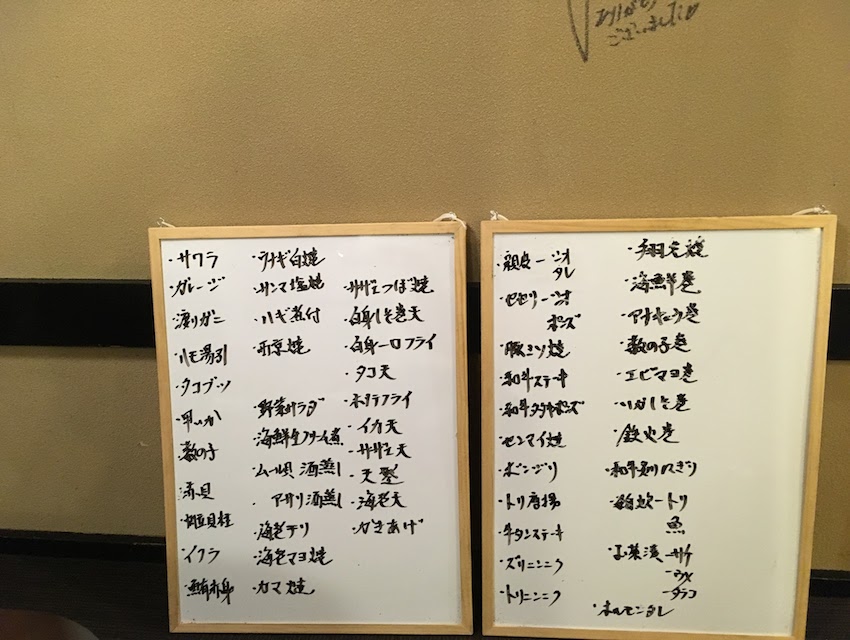 ありがとう
ございました♡
・サワラ
・ガレージ
・渡りガニ
・ハモ湯引
・タコブツ
・甲いか
・数の子
・赤貝
・姫貝柱
・イクラ
・鮪赤身
・ウナギ白焼
・サンマ塩焼
・ハギ煮付
・西京焼
・野菜サラダ
・海鮮生クリーム煮
・ムール貝酒蒸し
・アサリ酒蒸し
・海老チリ
・海老マヨ焼
・カマ焼
・サザエつぼ焼
・白身しそ巻天
・白身一口フライ
・タコ天
・ホタテフライ
・イカ天
・サザエ天
・天盛
・海老天
・かきあげ
・親皮ーシオ
タレ
・セセリーシオ
ポンズ
・豚ミソ焼
・和牛ステーキ
・和牛タタキポンズ
・センマイ焼
・ボンジリ
・トリ唐揚
・牛タンステーキ
・ズリニンニク
・トリニンニク
・手羽先焼
・海鮮巻
・アナキュウ巻
・数の子巻
・エビマヨ巻
・いかしそ巻
・鉄火巻
・和牛炙りにぎり
・雑炊ートリ
魚
・お茶漬ーサケ
ーウメ
ータラコ
・ホルモンタレ